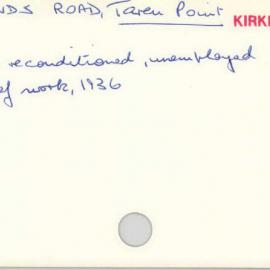 NDS ROAD, Taren Point KIRK
reconditioned, unemployed
ef work, 1936